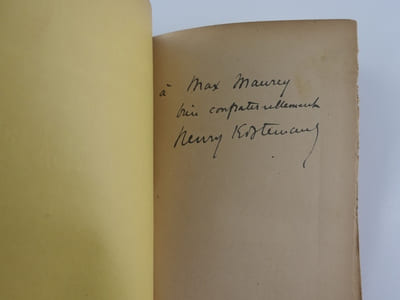 à Max Maurey
bien confraternellement
Henry Kistemaeckers